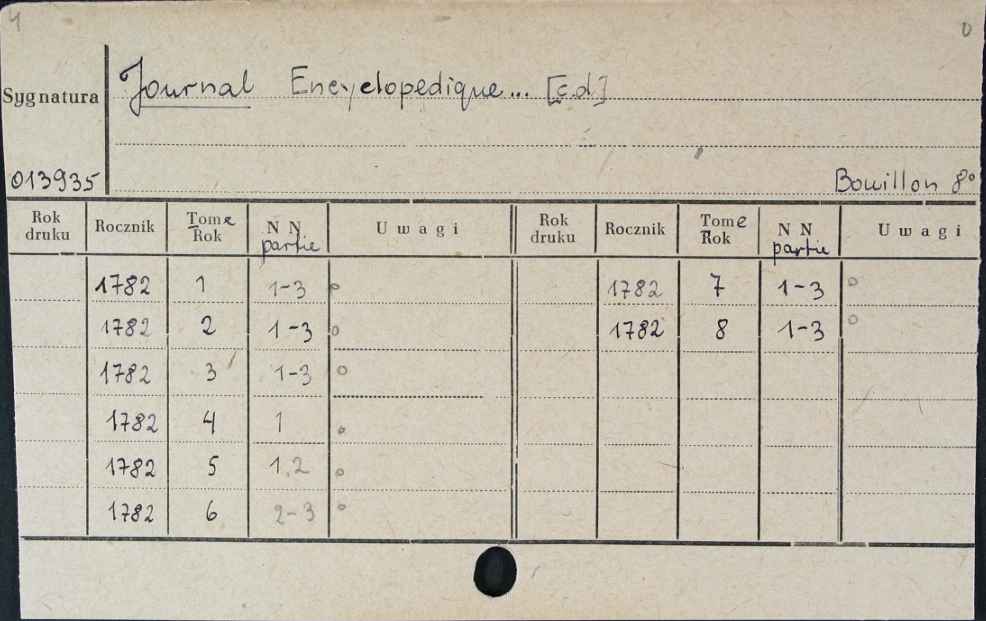 4 0
Sygnatura Journal Encyclopedique... [c.d]
013935 Bouillon 8°
Rok druku Rocznik Tome Rok N N partie Uwagi Rok druku Rocznik Tome Rok N N partie Uwagi
1782 1 1-3 o 1782 7 1-3 o
1782 2 1-3 o 1782 8 1-3 o
1782 3 1-3 o
1782 4 1 o
1782 5 1,2 o
1782 6 2-3 o